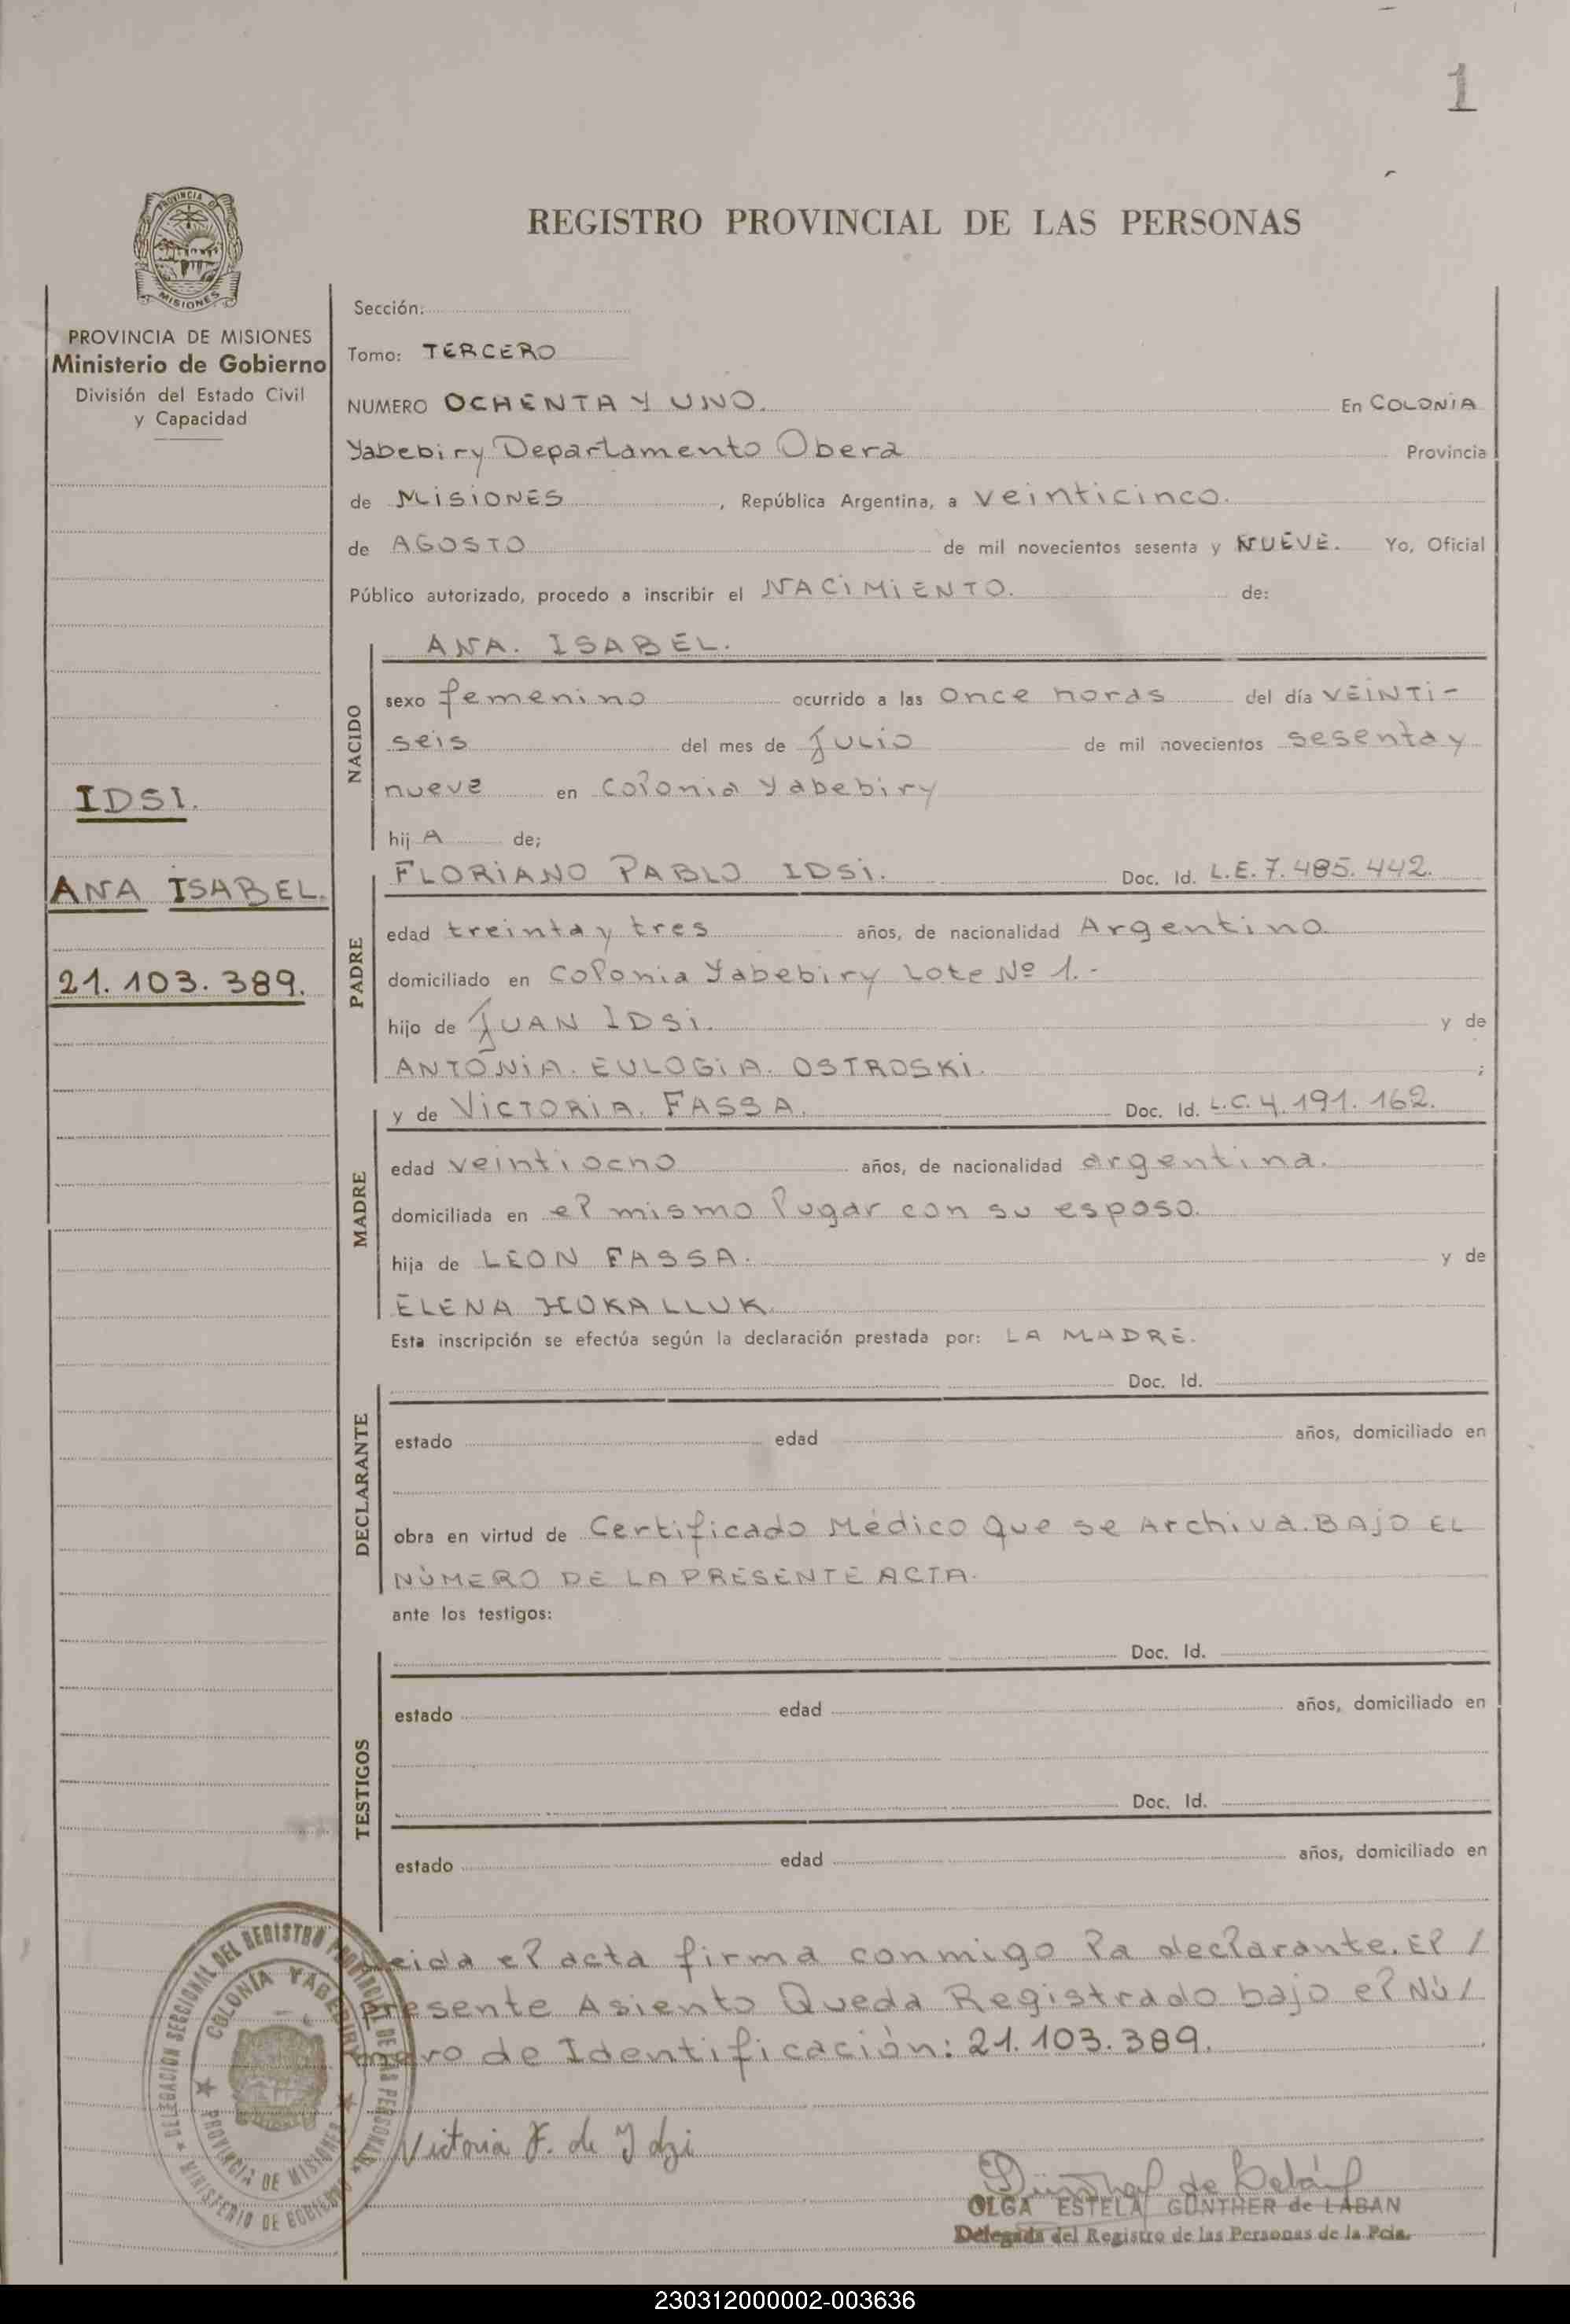 1
PROVINCIA DE
MISIONES
REGISTRO PROVINCIAL DE LAS PERSONAS
PROVINCIA DE MISIONES
Ministerio de Gobierno
División del Estado Civil
y Capacidad
IDSI.
ANA ISABEL.
21.103.389.
Sección:
Tomo: TERCERO
NUMERO OCHENTA Y UNO. En COLONIA
Yabebiry Departamento Obera Provincia
de MISIONES, República Argentina, a veinticinco.
de AGOSTO de mil novecientos sesenta y NUEVE. Yo, Oficial
Público autorizado, procedo a inscribir el NACIMIENTO. de:
NACIDO
ANA. ISABEL.
sexo femenino ocurrido a las once horas del día VEINTI-
seis del mes de Julio de mil novecientos sesenta y
nueve en Colonia Yabebiry
hij A de;
PADRE
FLORIANO PABLO IDSI. Doc. Id. L.E. 7.485.442.
edad treinta y tres años, de nacionalidad Argentino.
domiciliado en Colonia Yabebiry Lote Nº 1.-
hijo de JUAN IDSI. y de
ANTONIA. EULOGIA. OSTROSKI. ;
MADRE
y de VICTORIA. FASSA. Doc. Id. L.C. 4.191.162.
edad veintiocho años, de nacionalidad argentina.
domiciliada en el mismo lugar con su esposo.
hija de LEON FASSA. y de
ELENA HUKALLUK.
Esta inscripción se efectúa según la declaración prestada por: LA MADRE.
DECLARANTE
Doc. Id.
estado edad años, domiciliado en
obra en virtud de Certificado Médico Que se Archiva. BAJO EL
NÚMERO DE LA PRESENTE ACTA.
ante los testigos:
TESTIGOS
Doc. Id.
estado edad años, domiciliado en
Doc. Id.
estado edad años, domiciliado en
Leida el acta firma conmigo la declarante. El /
presente Asiento Queda Registrado bajo el Nú/
mero de Identificación: 21.103.389.
DELEGACION SECCIONAL DEL REGISTRO PROVINCIAL DE LAS PERSONAS
MINISTERIO DE GOBIERNO
COLONIA YABEBIRY
PROVINCIA DE MISIONES
Victoria F. de Idzi
OLGA ESTELA GÜNTHER de LABAN
Delegada del Registro de las Personas de la Pcia.
230312000002-003636